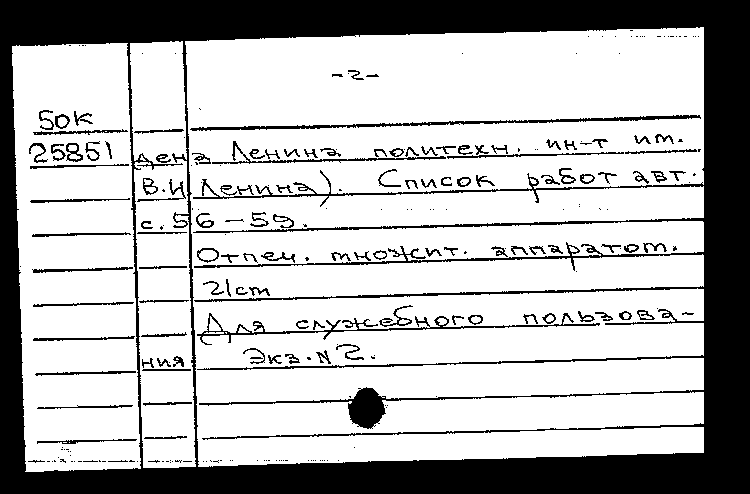 -2-
50к
25851 дена Ленина политехн. ин-т им.
В.И. Ленина). Список работ авт.
с. 56-59.
Отпеч. множит. аппаратом.
21cm
Для служебного пользова-
ния Экз. N 2.